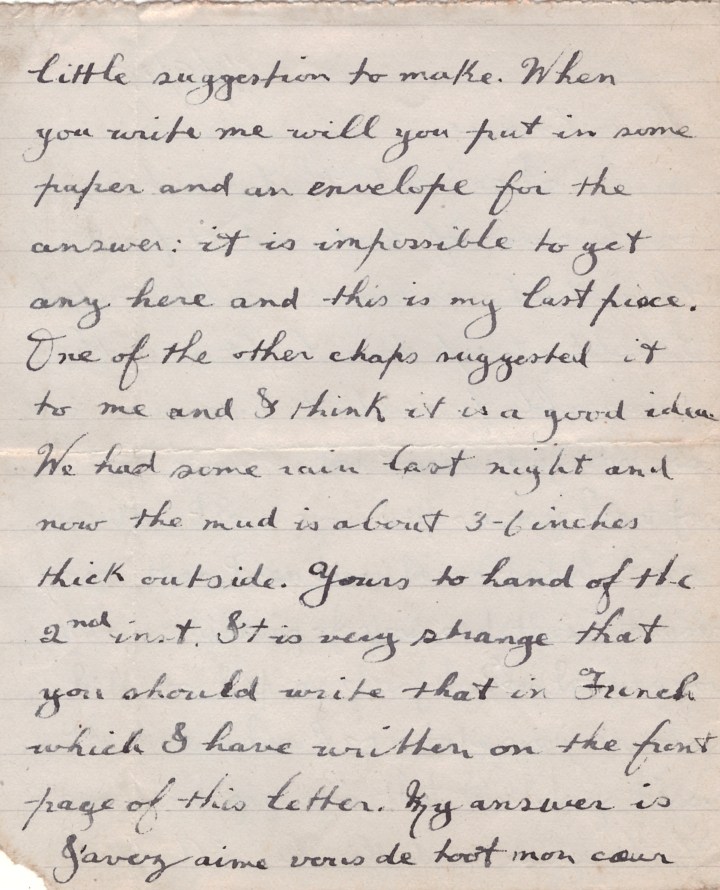 little suggestion to make. When
you write me will you put in some
paper and an envelope for the
answer: it is impossible to get
any here and this is my last piece.
One of the other chaps suggested it
to me and I think it is a good idea
We had some rain last night and
now the mud is about 3-6 inches
thick outside. Yours to hand of the
2nd inst. It is very strange that
you should write that in French
which I have written on the front
page of this letter. My answer is
J'averz aime vous de toot mon cœur